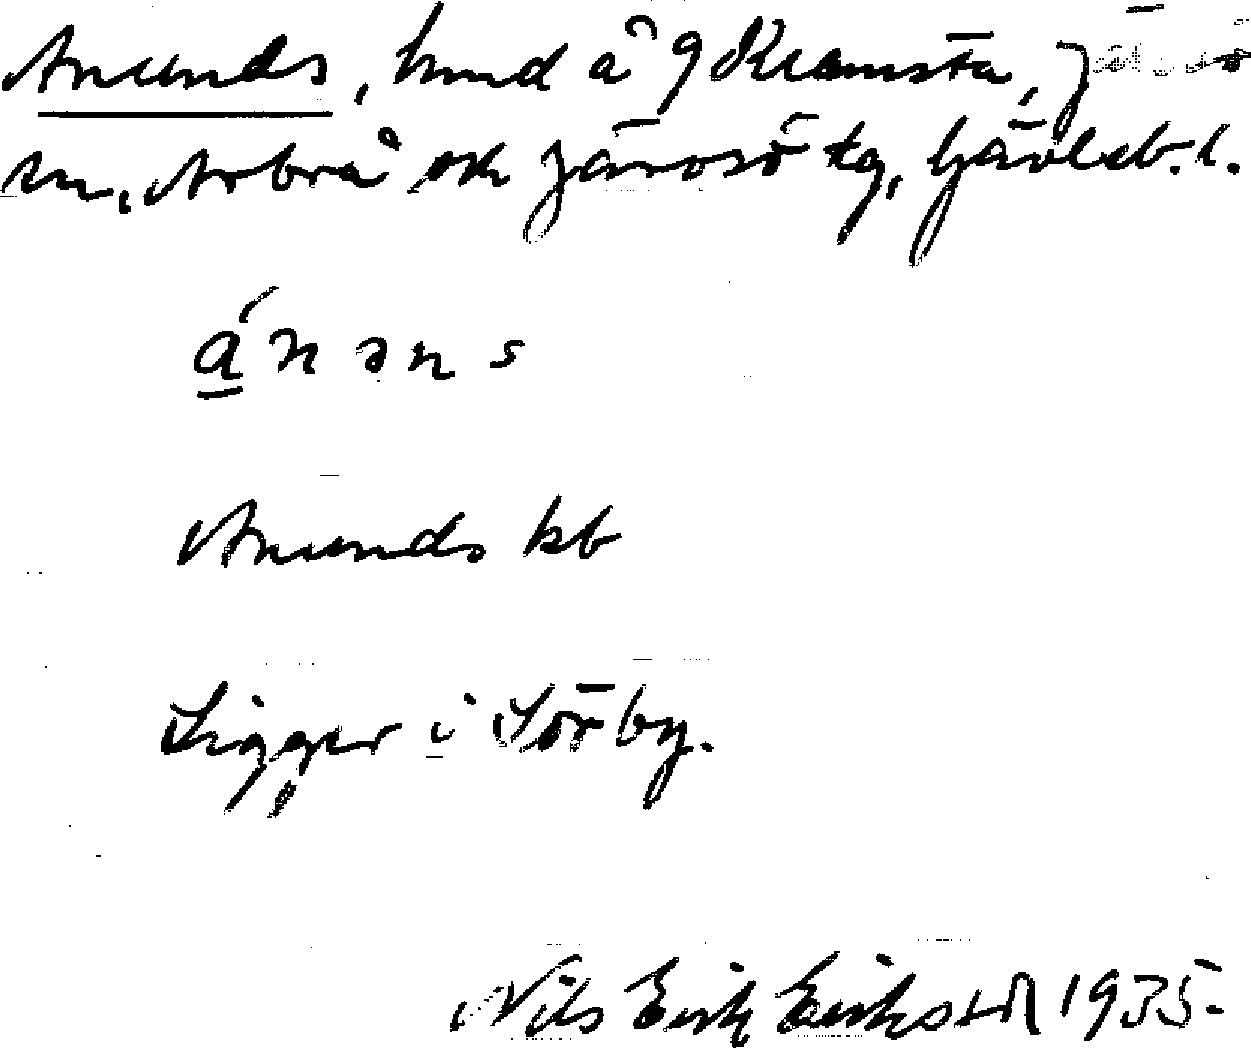 Anunds, hmd å 9 Kramsta, Järvsö
sn, Arbrå ok Järvsö tg, Gävleb. l.
ánəns
Anunds kb
Ligger i Sörby.
Nils Erik Eriksson 1935.